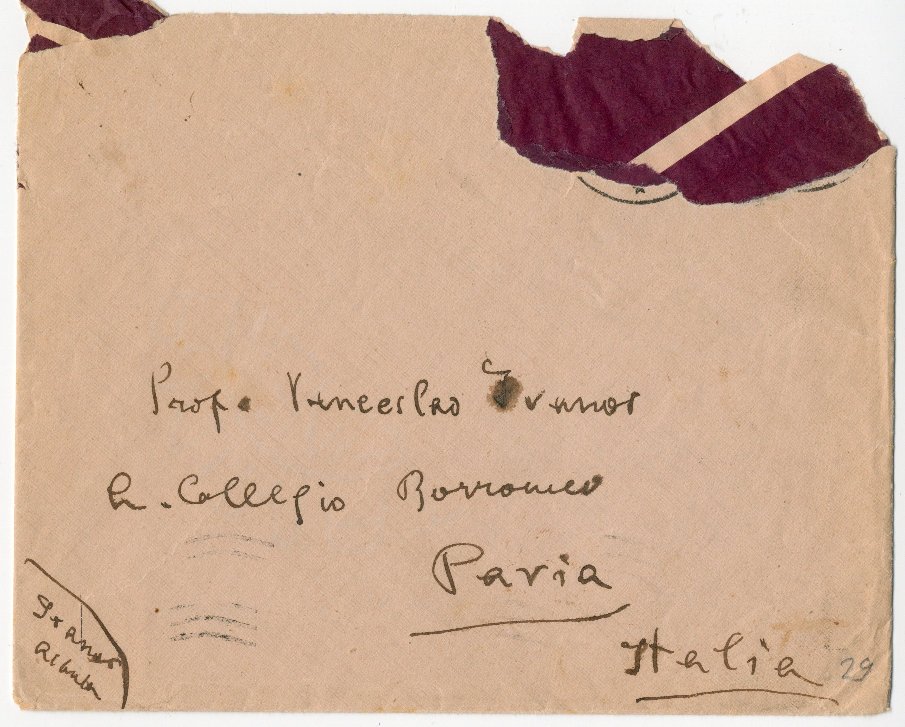 Prof. Venceslao Ivanov
R. Collegio Borromeo
Pavia
Italia
29
Ivanov